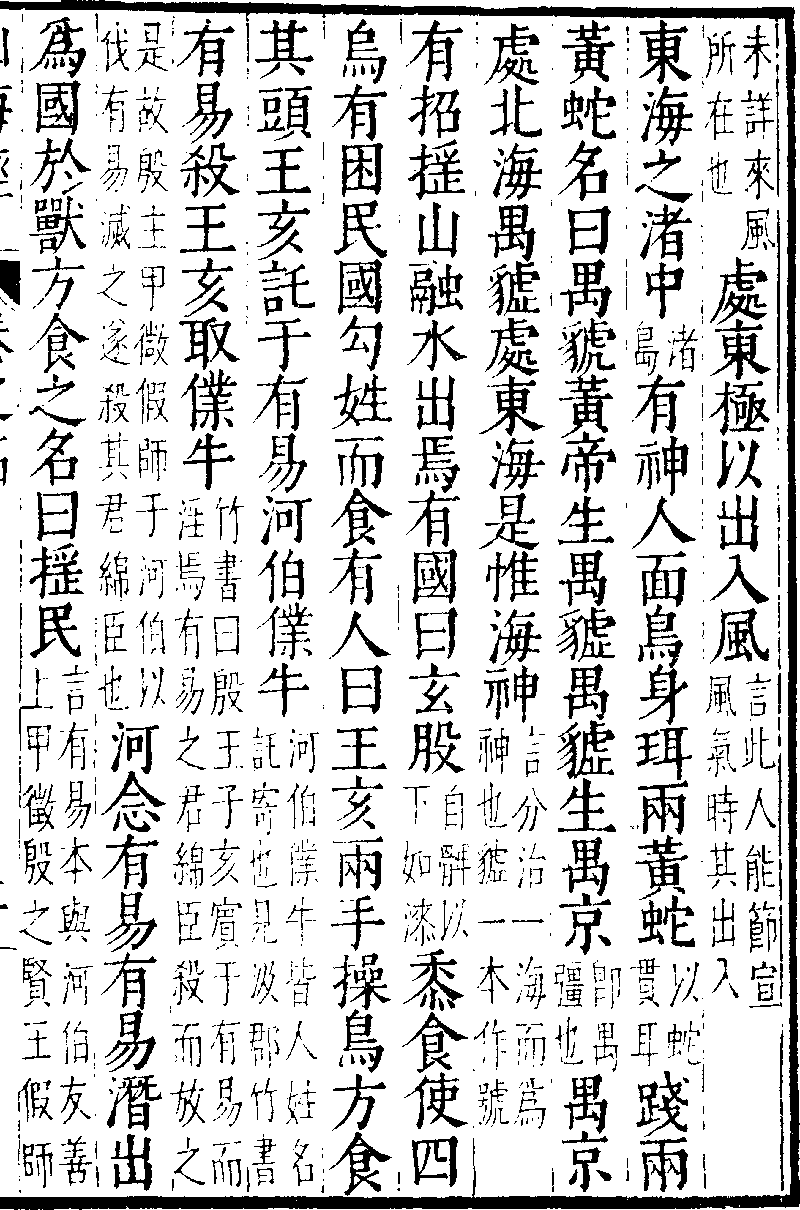 未詳來風所在也處東極以出入風言此人能節宣風氣時其出入
東海之渚中渚島有神人面鳥身珥兩黃蛇以蛇貫耳踐兩
黃蛇名曰禺䝞黃帝生禺䝞禺䝞生禺京即禺彊也禺京
處北海禺䝞處東海是惟海神言分治一海而為神也䝞一本作號
有招搖山融水出焉有國曰玄股自髀以下如漆黍食使四
鳥有困民國勾姓而食有人曰王亥兩手操鳥方食
其頭王亥託于有易河伯僕牛河伯僕牛皆人姓名託寄也見汲郡竹書
有易殺王亥取僕牛竹書曰殷王子亥賓于有易而淫焉有易之君綿臣殺而放之
是故殷主甲微假師于河伯以伐有易滅之遂殺其君綿臣也河念有易有易潛出
爲國於獸方食之名曰搖民言有易本與河伯友善上甲微殷之賢王假師